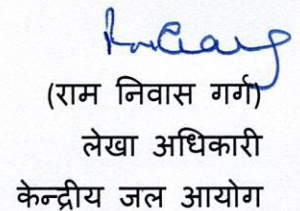 (राम निवास गर्ग)
लेखा अधिकारी
केन्द्रीय जल आयोग